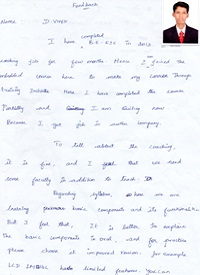 Feed back
Name D. Vivek
I have completed B.E - ECE in 2013.
looking job for few months. Now I joined the
embedded course here to make my career through
training Institute. Here, I have completed the course
Partially and I am quiting now
Because I got job in another company.
To tell about the coaching,
it is fine, and I feel that we need
some faculty in addition to teach.
Regarding syllabus, here we are
learning basic components and its functionality.
But I feel that, It is better to explain
The basic components in oral, and for practice
please choose it improved version. for example
LCD limited features. You can